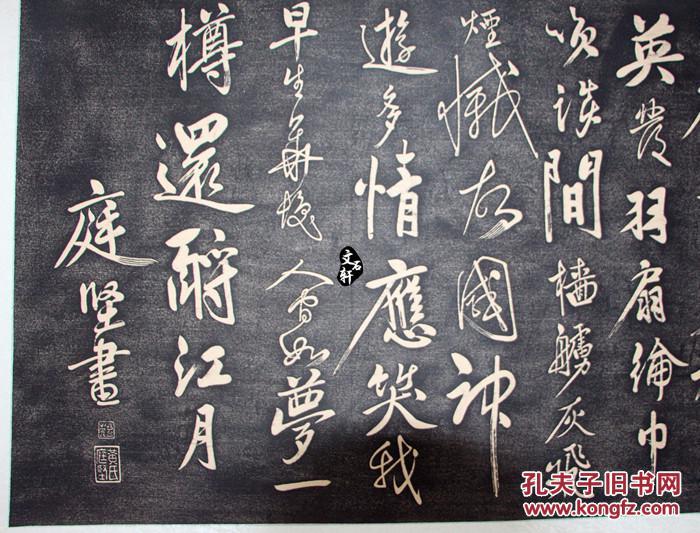 英發羽扇綸巾
咲談間檣艣灰飛
煙滅故國神
遊多情應笑我
早生華髮人間如夢一
樽還酹江月
庭堅書
黃氏庭堅
文石軒
孔夫子旧书网
www.kongfz.com